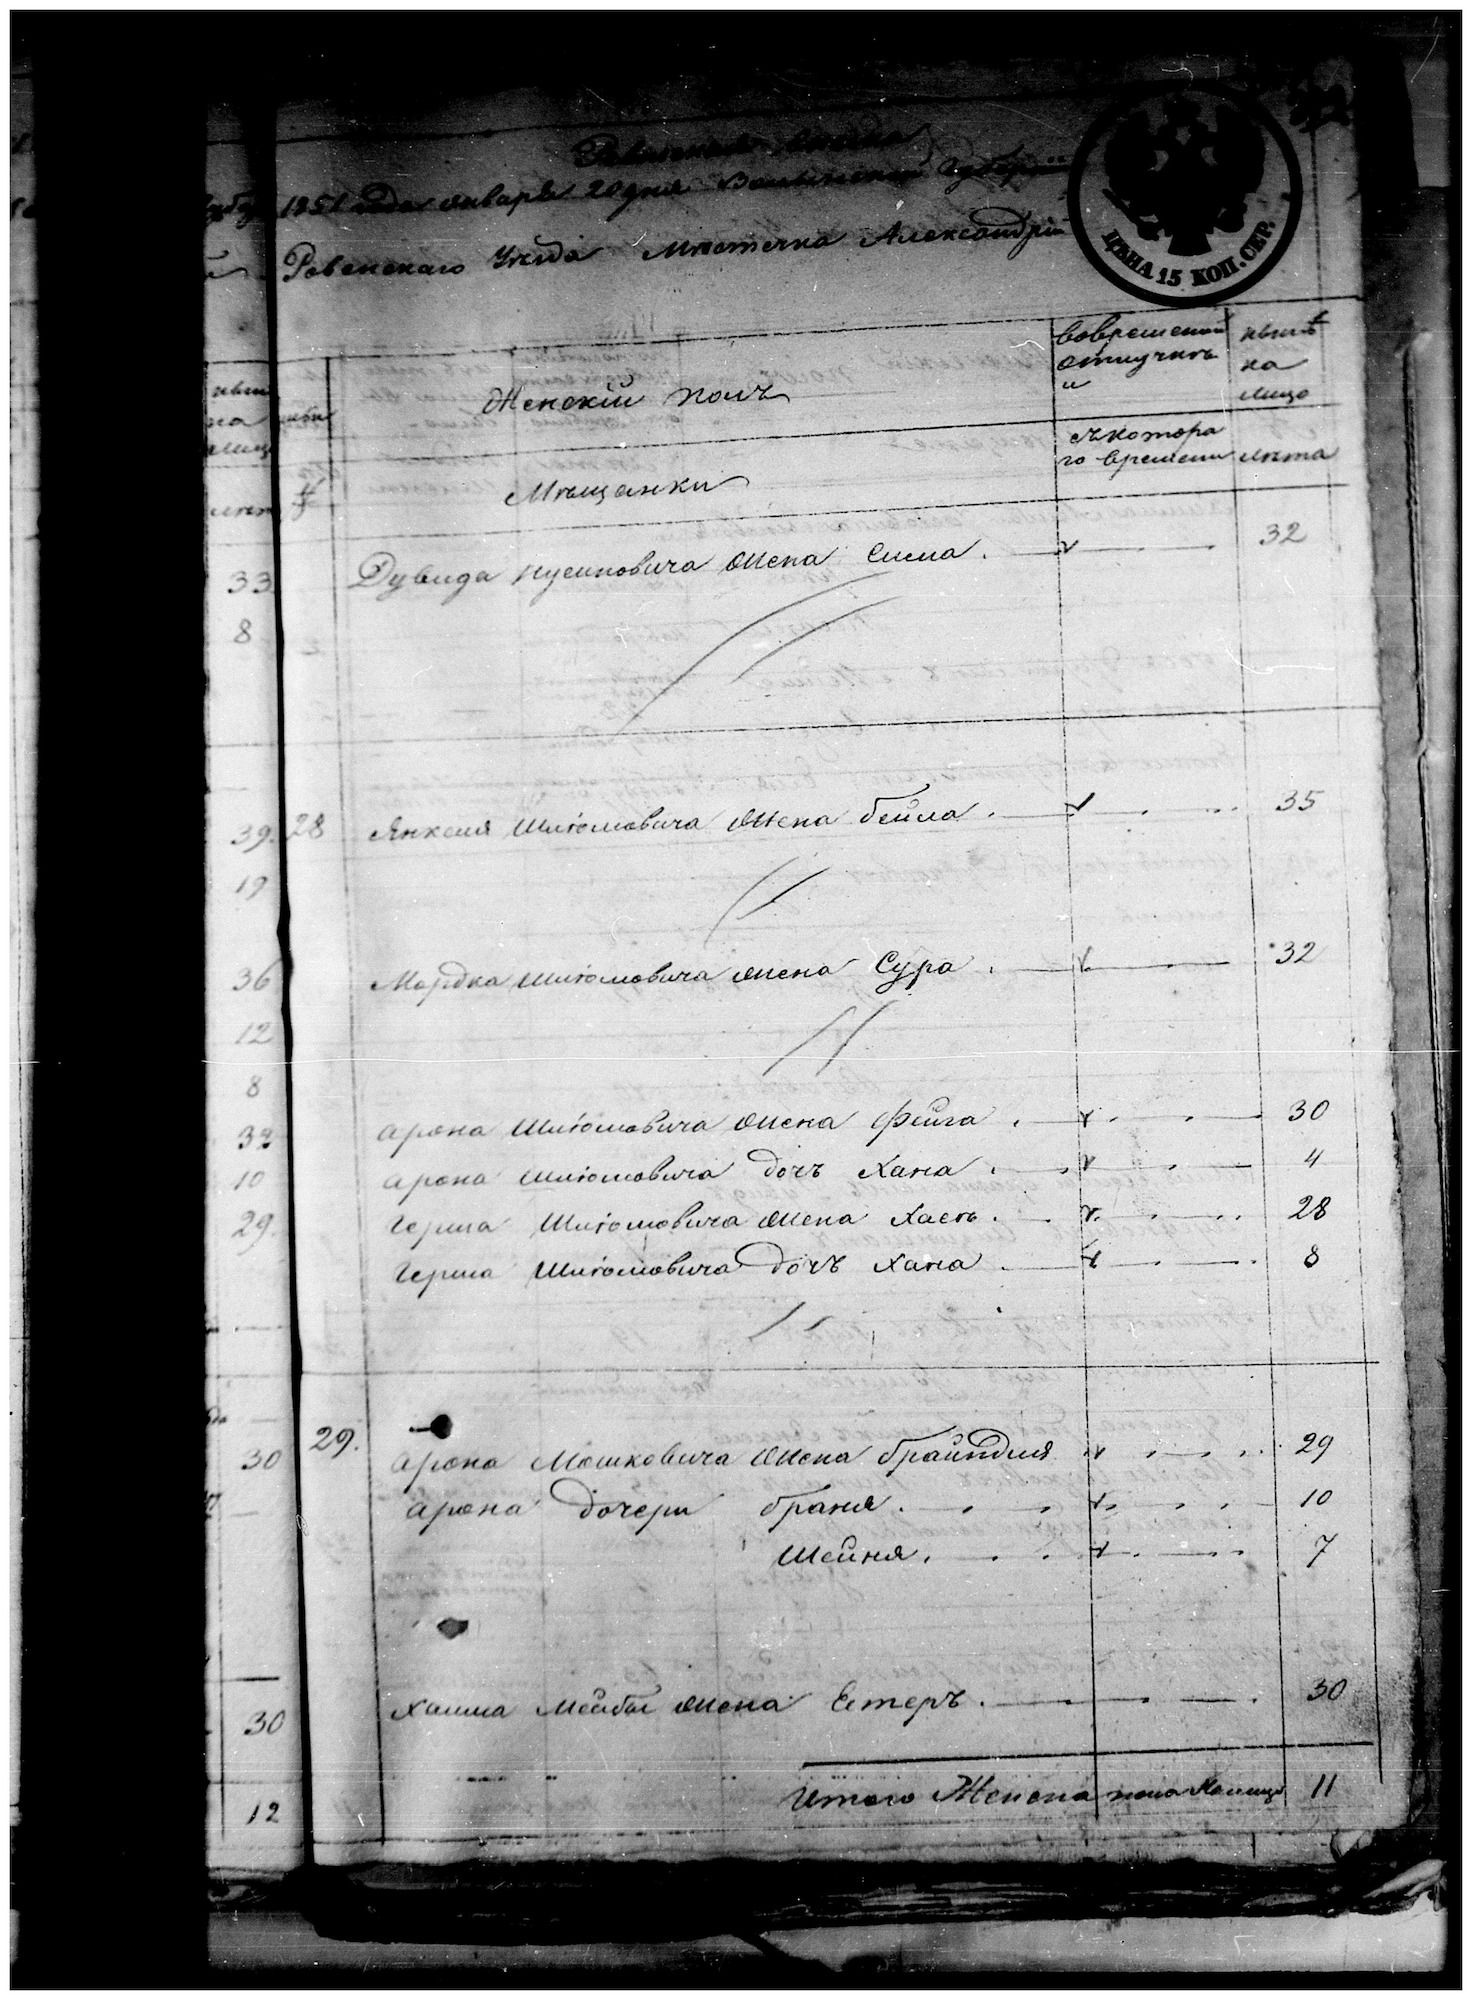 Ревизская сказка
1851 года Января 20 дня Волынской Губернии
Ровенскаго Уезда Местечка Александрии
ЦѢНА 15 КОП. СЕР.
Женскій полъ
Вовременной отлучкѣ
нынѣ на лицо
съкотора го времени
лѣта
Мѣщанки
33
Дувида Нусиновича жена Сима . 32
8
39. 28 Янкеля Шліомовича жена Бейла . 35
19
36 Мордка Шліомовича жена Сура . 32
12
8
Арона Шліомовича жена Фейга . 30
10 Арона Шліомовича дочъ Хана . 4
29. Герша Шліомовича жена Хаея . 28
Герша Шліомовича дочъ Хана . 8
30 29. Арона Мошковича жена Брайндля 29
Арона дочери Браня . 10
Шейня . 7
30 Хаима Лейбы жена Естеръ . 30
12 Итого Женска пола Налицо 11